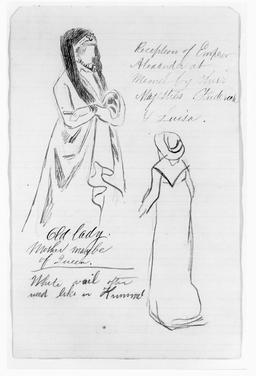 Reception of Emperor
Alexander at
Memel by their
Majesties Frederick
& Luisa.
Old lady.
Mother maybe
of Queen.
White vail often
used like in Hummel